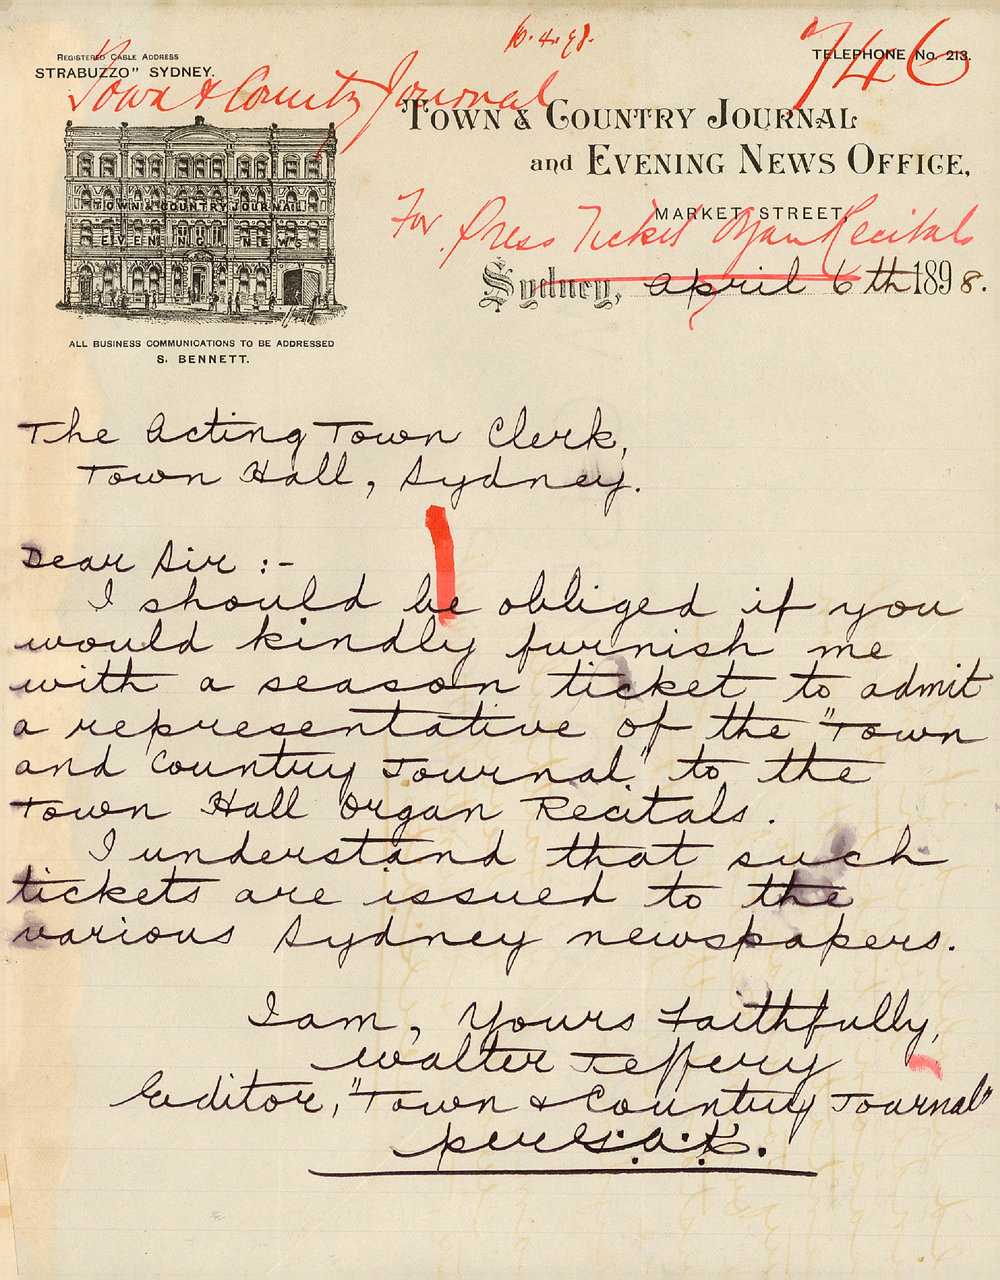 6.4.98.
746
REGISTERED CABLE ADDRESS
STRABUZZO" SYDNEY.
TELEPHONE No. 213.
Town & Country Journal
TOWN & COUNTRY JOURNAL
and EVENING NEWS OFFICE,
TOWN & COUNTRY JOURNAL
EVENING NEWS
MARKET STREET,
For Press Ticket Organ Recitals
Sydney, April 6th 1898.
ALL BUSINESS COMMUNICATIONS TO BE ADDRESSED
S. BENNETT.
The Acting Town Clerk,
Town Hall, Sydney.
Dear Sir :-
I should be obliged if you
would kindly furnish me
with a season ticket to admit
a representative of the "Town
and Country Journal" to the
Town Hall Organ Recitals.
I understand that such
tickets are issued to the
various Sydney newspapers.
I am, Yours faithfully,
Walter Jeffery
Editor, "Town & Country Journal"
per G.A.K.